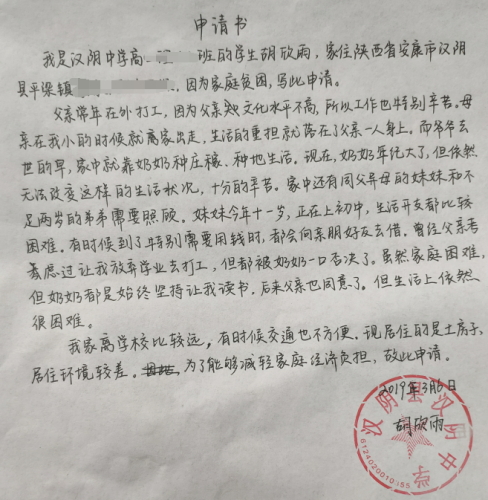 申请书
我是汉阴中学高 班的学生胡欣雨，家住陕西省安康市汉阴
县平梁镇 ，因为家庭贫困，写此申请。
父亲常年在外打工，因为父亲文化水平不高，所以工作也特别辛苦。母
亲在我小的时候就离家出走，生活的重担就落在了父亲一人身上。而爷爷去
世的早，家中就靠奶奶种庄稼、种地生活。现在，奶奶年纪大了，但依然
无法改变这样的生活状况，十分的辛苦。家中还有同父异母的妹妹和不
足两岁的弟弟需要照顾。妹妹今年十一岁，正在上初中，生活开支都比较
困难。有时候到了特别需要用钱时，都会向亲朋好友去借。曾经父亲考
虑过让我放弃学业去打工，但都被奶奶一口否决了。虽然家庭困难，
但奶奶都是始终坚持让我读书。后来父亲也同意了。但生活上依然
很困难。
我家离学校比较远，有时候交通也不方便。现居住的是土房子，
居住环境较差。为了能够减轻家庭经济负担，故此申请。
2019年3月6日
胡欣雨
汉阴县汉阴中学
6124020010155